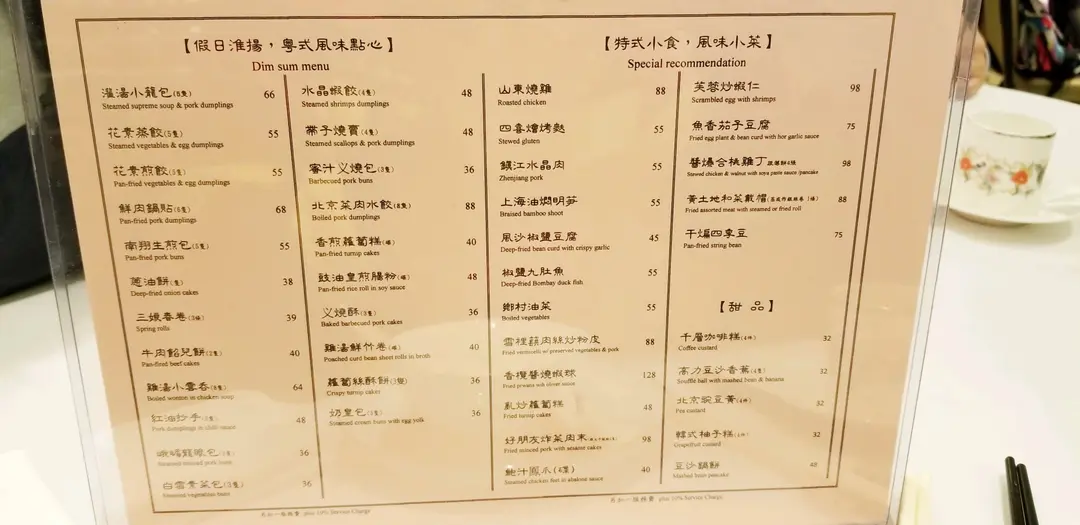 【假日淮揚，粵式風味點心】
Dim sum menu
溫湯小籠包(6隻) 66
Steamed supreme soup & pork dumplings
花素蒸餃(5隻) 55
Steamed vegetables & egg dumplings
花素煎餃(5隻) 55
Pan-fried vegetables & egg dumplings
鮮肉鍋貼(5隻) 68
Pan-fried pork dumplings
南翔生煎包(5隻) 55
Pan-fried pork buns
蔥油餅(隻) 38
Deep-fried onion cakes
三娘春卷(3條) 39
Spring rolls
牛肉餡兒餅(2隻) 40
Pan-fired beef cakes
雞湯小雲吞(8隻) 64
Boiled wonton in chicken soup
紅油抄手 48
Pork dumplings in chilli sauce
36
Steamed minced pork buns
白雪素菜包(3隻) 36
Steamed vegetables buns
水晶蝦餃(4隻) 48
Steamed shrimps dumplings
帶子燒賣(4隻) 48
Steamed scallops & pork dumplings
蜜汁义燒包(3隻) 36
Barbecued pork buns
北京菜肉水餃(8隻) 88
Boiled pork dumplings
香煎蘿蔔糕(碟) 40
Pan-fried turnip cakes
豉油皇煎腸粉(碟) 48
Pan-fried rice roll in soy sauce
义燒酥(3隻) 36
Baked barbecued pork cakes
雞湯鮮竹卷(碟) 40
Poached curd bean sheet rolls in broth
蘿蔔絲酥餅(3隻) 36
Crispy turnip cakes
奶皇包(3隻) 36
Steamed cream buns with egg yolk
【特式小食，風味小菜】
Special recommendation
山東燒雞 88
Roasted chicken
四喜燴烤麩 55
Stewed gluten
鎮江水晶肉 55
Zhenjiang pork
上海油燜明笋 55
Braised bamboo shoot
風沙椒鹽豆腐 45
Deep-fried bean curd with crispy garlic
椒鹽九肚魚 55
Deep-fried Bombay duck fish
鄉村油菜 55
Boiled vegetables
雪裡蕻肉絲炒粉皮 88
Fried vermicelli w/ preserved vegetables & pork
香欖醬燒蝦球 128
Fried prawns with oliver sauce
亂炒蘿蔔糕 48
Fried turnip cakes
好朋友炸菜肉末 98
Fried minced pork with sesame cakes
鮑汁鳳爪(碟) 40
Steamed chicken feet in abalone sauce
芙蓉炒蝦仁 98
Scrambled egg with shrimps
魚香茄子豆腐 75
Fried egg plant & bean curd with hot garlic sauce
醬爆合桃雞丁 98
Stewed chicken & walnut with soya paste sauce /pancake
黃土地和菜戴帽 88
Fried assorted meat with steamed or fried roll
干煸四季豆 75
Pan-fried string bean
【甜 品】
千層咖啡糕(4件) 32
Coffee custard
高力豆沙香蕉(4隻) 32
Souffle ball with mashed bean & banana
北京豌豆黃(4件) 32
Pea custard
韓式柚子糕(4件) 32
Grapefruit custard
豆沙鍋餅 48
Mashed bean pancake
另加一服務費 plus 10% Service Charge
另加一服務費 plus 10% Service Charge